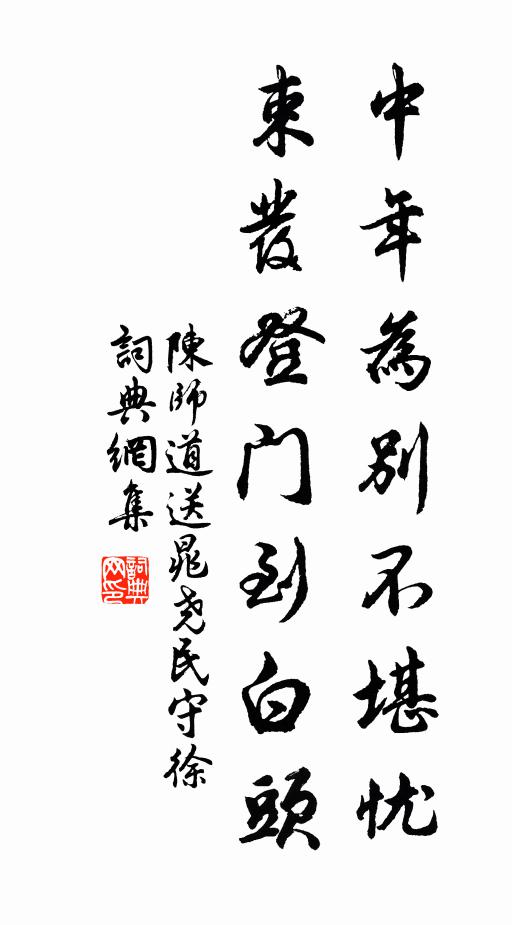 中年為別不堪忧
束發登门到白頭
陳師道送晁尧民守徐
詞典網集
詞典网印